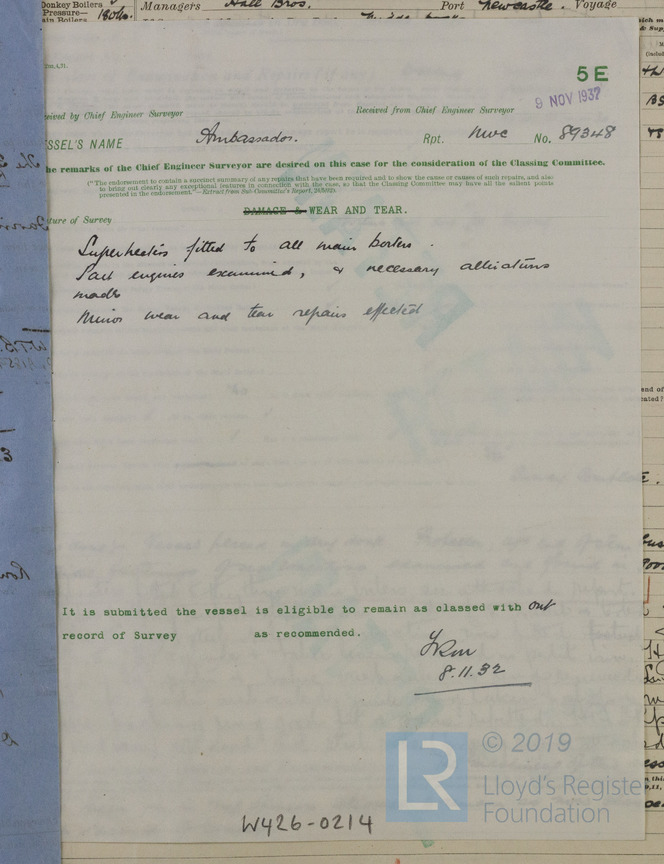 Donkey Boilers
Pressure—
ain Boilers 180lb.
Managers Hall Bros. Port Newcastle. Voyage
5 E
9 NOV 1932
eived by Chief Engineer Surveyor
Received from Chief Engineer Surveyor
ESSEL'S NAME Ambassador. Rpt. Nwc No. 89348
he remarks of the Chief Engineer Surveyor are desired on this case for the consideration of the Classing Committee.
("The endorsement to contain a succinct summary of any repairs that have been required and to show the cause or causes of such repairs, and also
to bring out clearly any exceptional features in connection with the case, so that the Classing Committee may have all the salient points
presented in the endorsement."—Extract from Sub-Committee's Report,
DAMAGE & WEAR AND TEAR.
ture of Survey
Superheaters fitted to all main boilers.
Said engines examined, & necessary alterations
made
Minor wear and tear repairs effected
It is submitted the vessel is eligible to remain as classed with out
record of Survey as recommended.
8.11.32
LR © 2019
Lloyd's Registe
Foundation
W426-0214